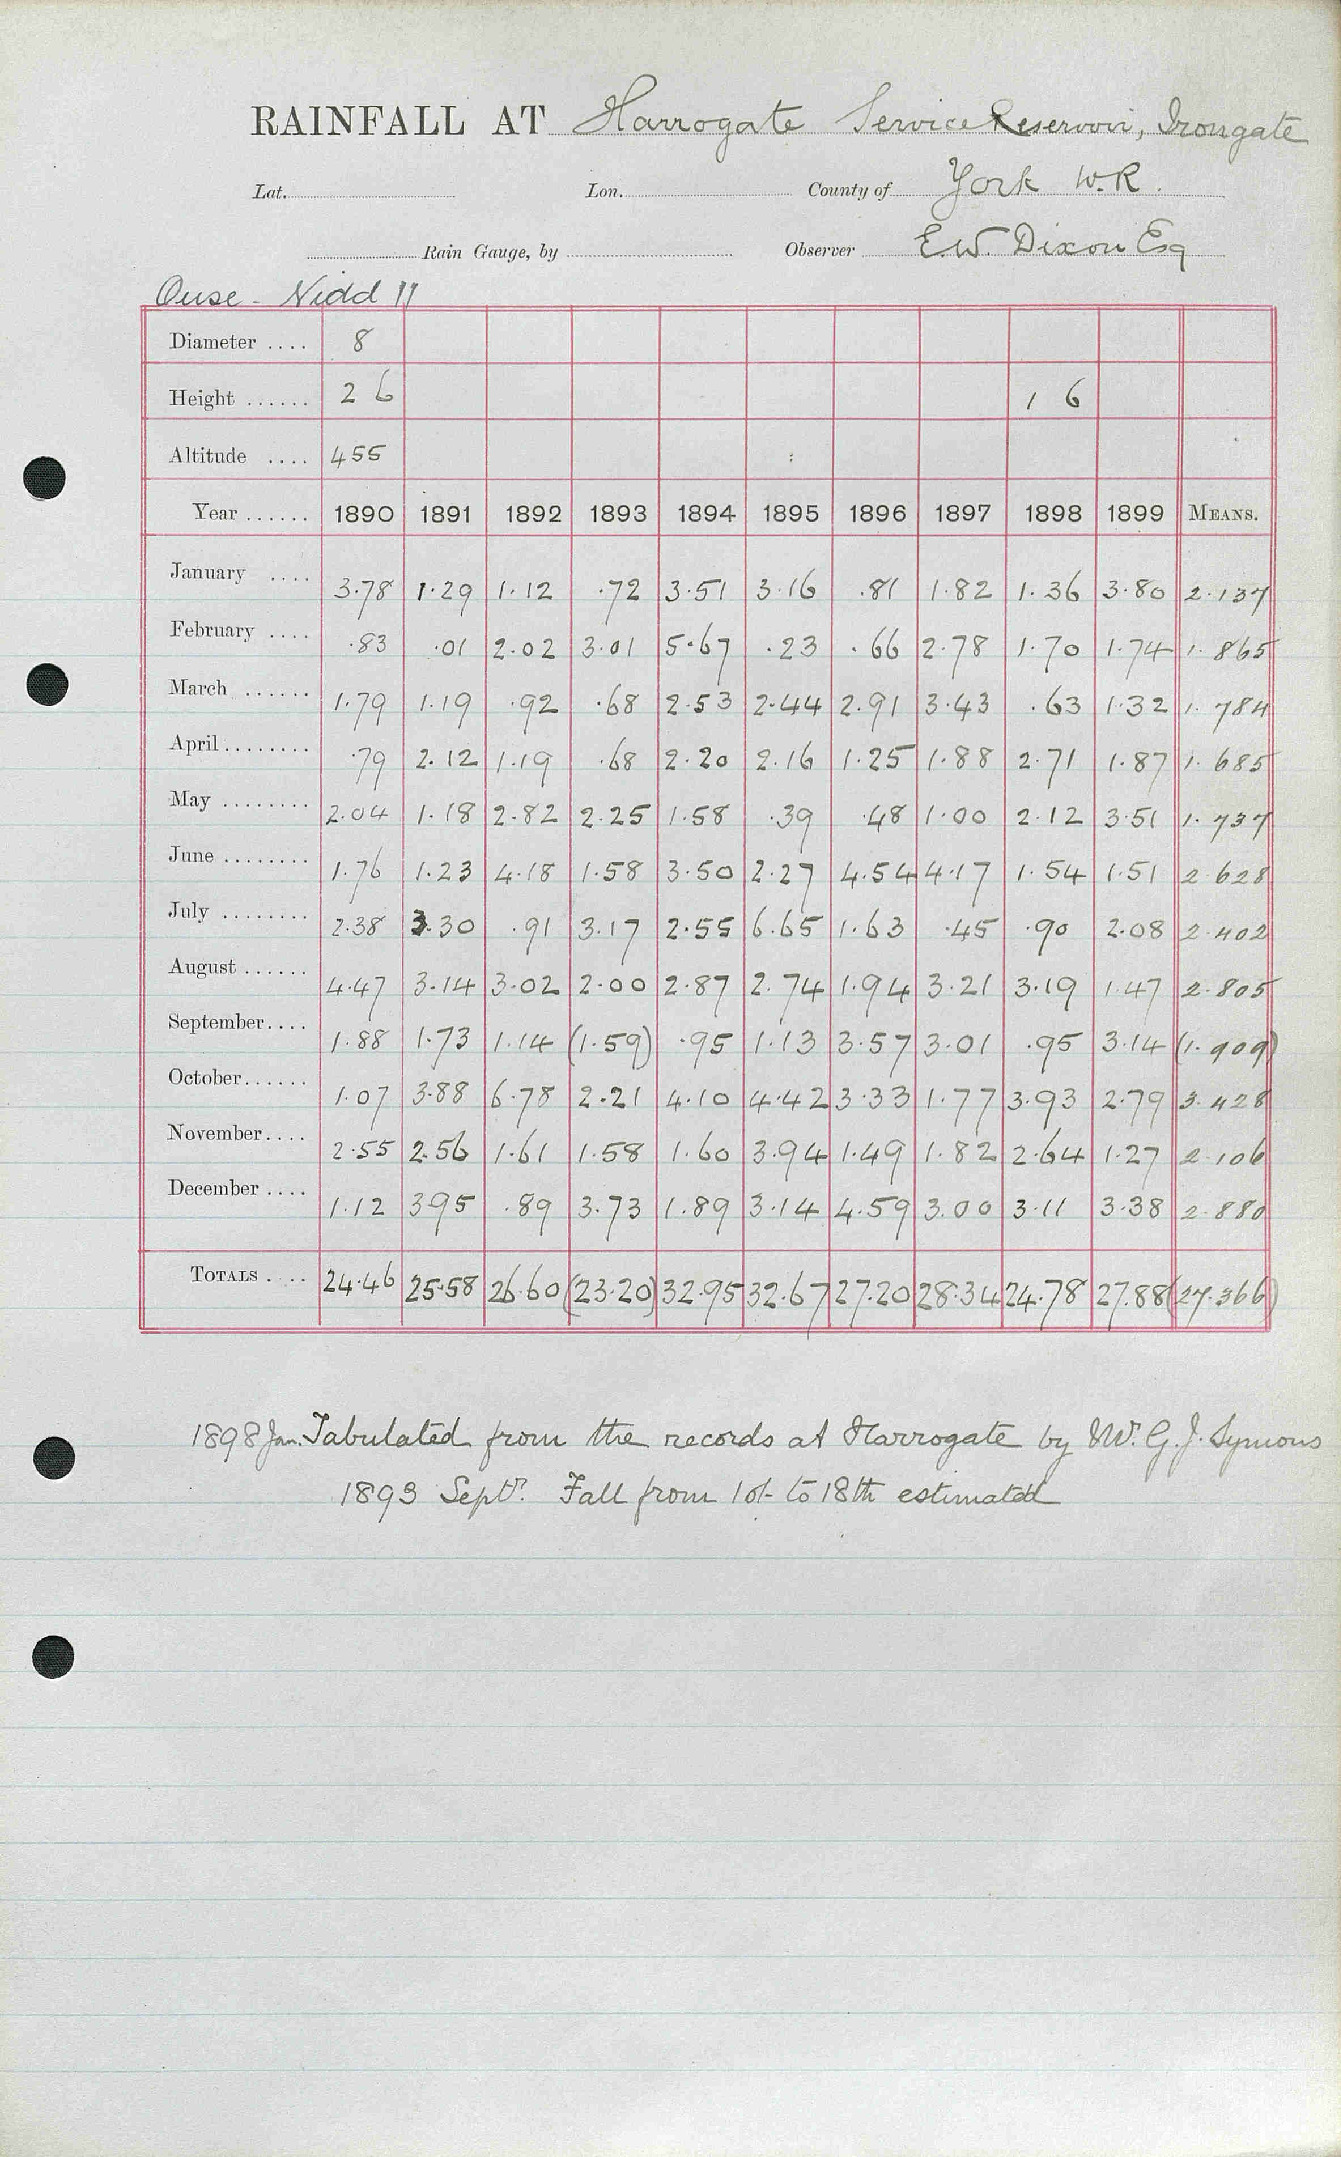 RAINFALL AT Harrogate Service Reservoir, Irongate
Lat. Lon. County of York W.R.
Rain Gauge, by Observer E.W. Dixon Esq
Ouse - Nidd 11
Diameter .... 8
Height ...... 2 6 1 6
Altitude .... 455
Year ...... 1890 1891 1892 1893 1894 1895 1896 1897 1898 1899 MEANS.
January .... 3.78 1.29 1.12 .72 3.51 3.16 .81 1.82 1.36 3.80 2.137
February .... .83 .01 2.02 3.01 5.67 .23 .66 2.78 1.70 1.74 1.865
March ...... 1.79 1.19 .92 .68 2.53 2.44 2.91 3.43 .63 1.32 1.784
April ........ .79 2.12 1.19 .68 2.20 2.16 1.25 1.88 2.71 1.87 1.685
May ........ 2.04 1.18 2.82 2.25 1.58 .39 .48 1.00 2.12 3.51 1.737
June ........ 1.76 1.23 4.18 1.58 3.50 2.27 4.54 4.17 1.54 1.51 2.628
July ........ 2.38 3.30 .91 3.17 2.55 6.65 1.63 .45 .90 2.08 2.402
August ...... 4.47 3.14 3.02 2.00 2.87 2.74 1.94 3.21 3.19 1.47 2.805
September.... 1.88 1.73 1.14 (1.59) .95 1.13 3.57 3.01 .95 3.14 (1.909)
October...... 1.07 3.88 6.78 2.21 4.10 4.42 3.33 1.77 3.93 2.79 3.428
November.... 2.55 2.56 1.61 1.58 1.60 3.94 1.49 1.82 2.64 1.27 2.106
December .... 1.12 3.95 .89 3.73 1.89 3.14 4.59 3.00 3.11 3.38 2.880
TOTALS .... 24.46 25.58 26.60 (23.20) 32.95 32.67 27.20 28.34 24.78 27.88 (27.366)
1898 Jan. Tabulated from the records at Harrogate by Mr. G. J. Symons
1893 Septr. Fall from 1st to 18th estimated